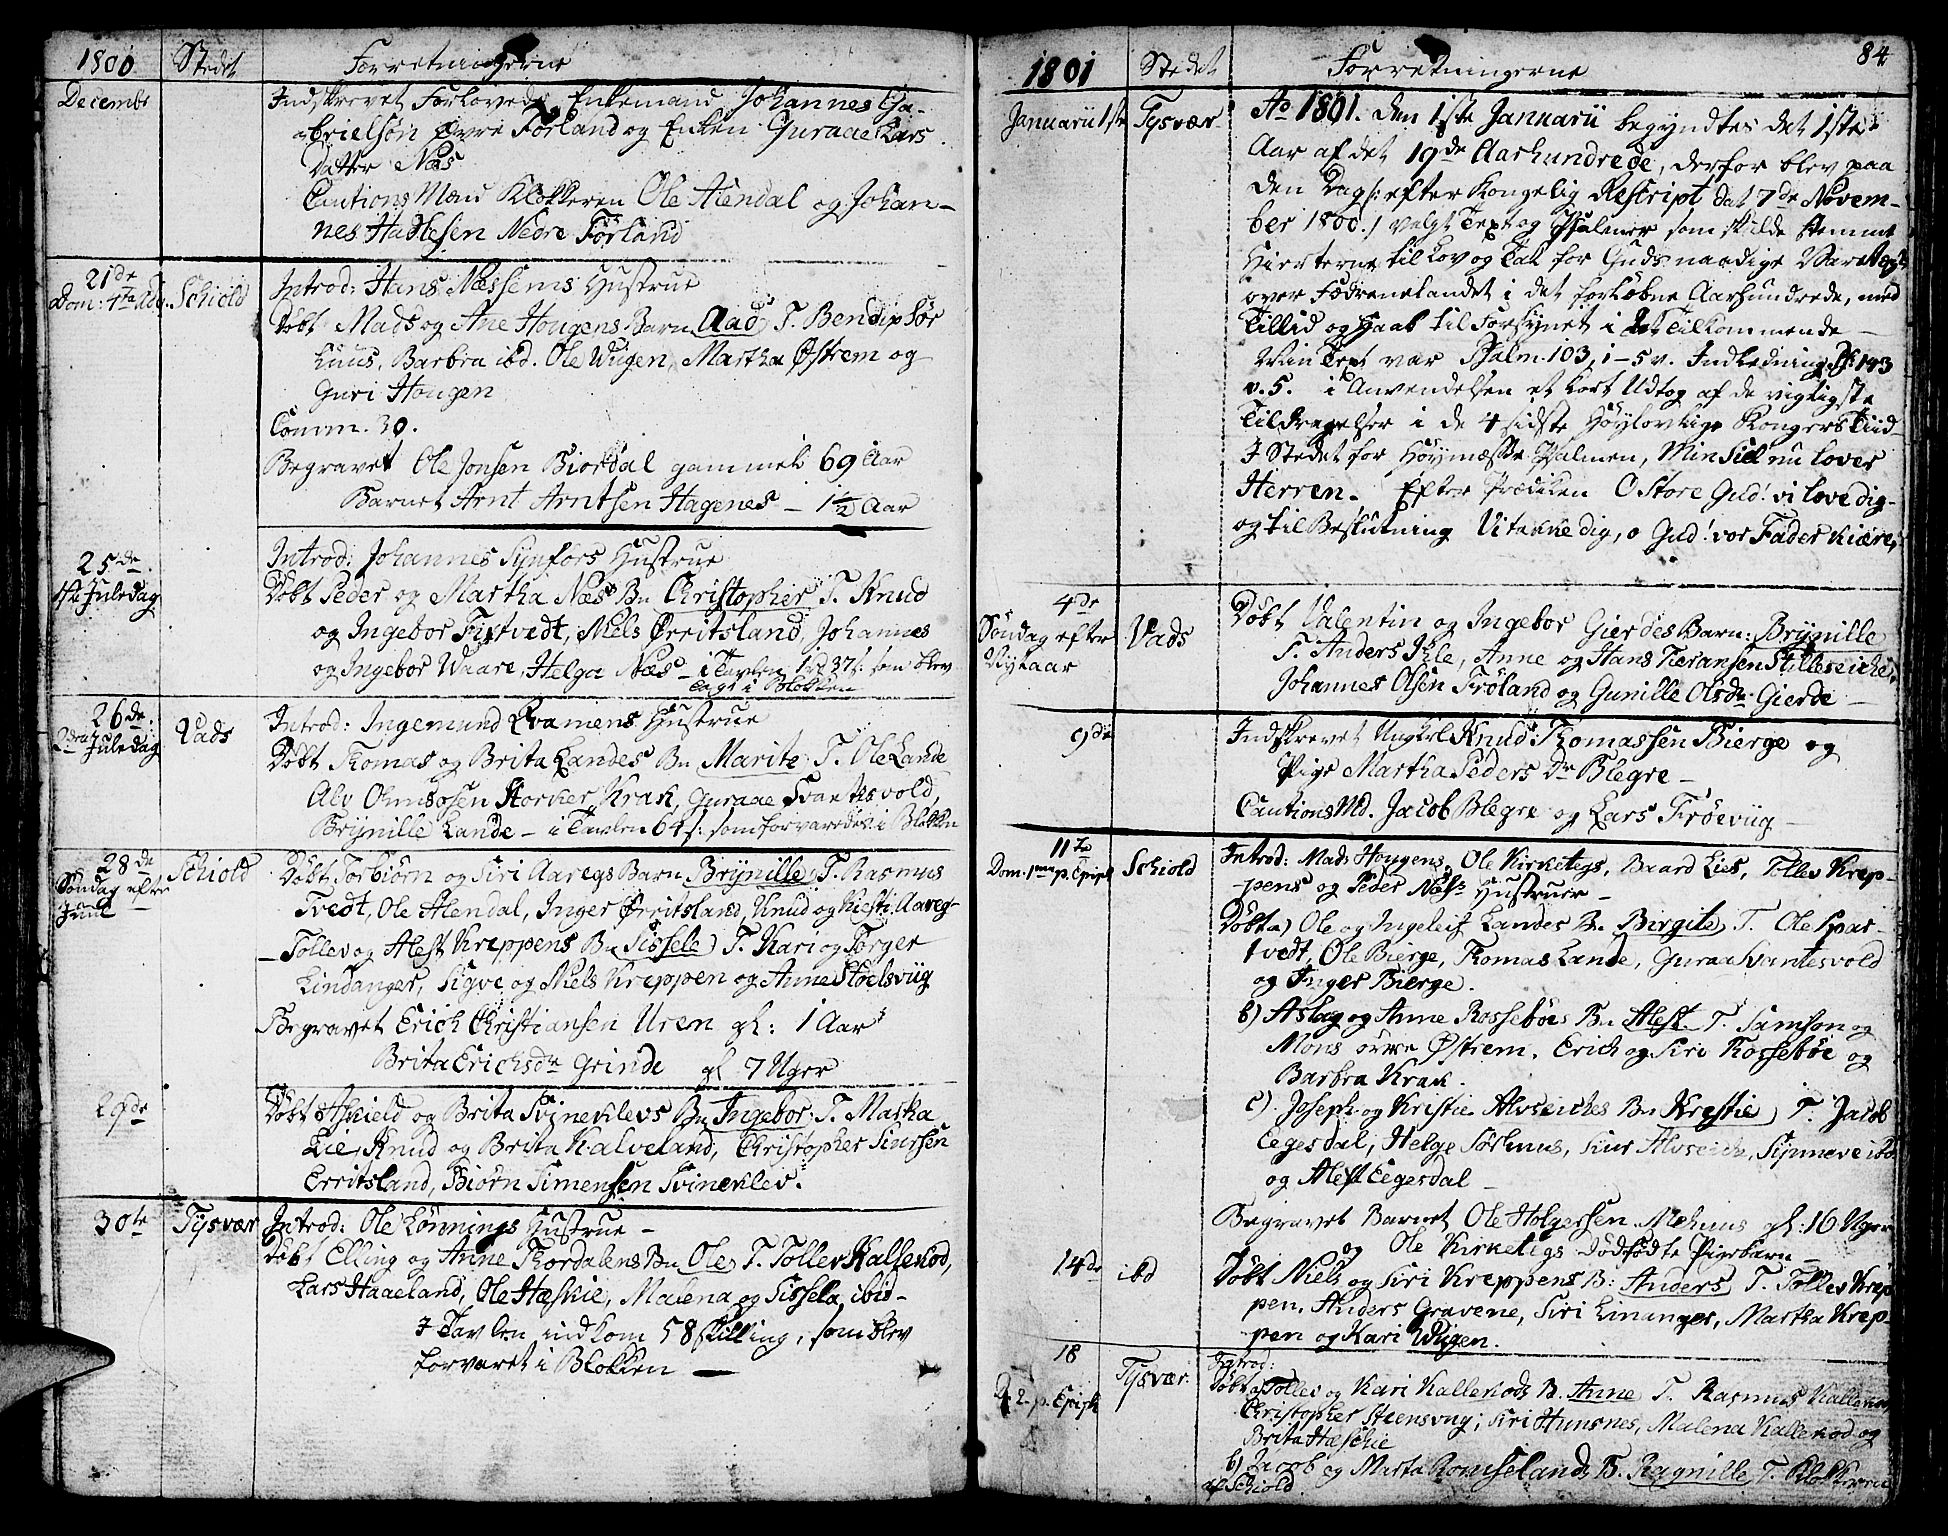 1800 Stedet Forretningerne
Decembr Indskrevet Forlovede Enkemand Johannes Ga-
brielsøn Øvre Førland og Enken Guraae Lars
Datter Næs
Cautions Mænd Klokkeren Ole Alendal og Johan-
nes Hadlesen Nedre Førland
21de Dom: 4ta Adv. Schiold Introd: Hans Næssems Hustrue
Døbt Mads og Ane Hougens Barn Aad T. Bendix Sør
huus, Barbra ibd. Ole Wugen, Martha Østrem og
Guri Hougen
Comm. 30.
Begravet Ole Jonsen Biordal gammel 69 Aar
Barnet Arnt Arntsen Hagenes - 1 1/2 Aar
25de 1ste Juledag Introd: Johannes Synfors Hustrue
Døbt Peder og Martha Næs Bn Christopher T. Knud
og Ingebor Fixtvedt, Niels Ørritsland, Johannes
og Ingebor Waare, Helga Næs - i Tavlen 1 rd 37 s. som blev
lagt i Blokken
26de 2den Juledag Vads Introd: Ingemund Kvamens Hustrue
Døbt Thomas og Brita Landes Bn Marite T. Ole Lande
Alv Omsosen Storker Krak, Guraae Svantesvold,
Brynille Lande - i Tavlen 64 s: som forvaredes i Blokken
28de Søndag efter Juul Schiold Døbt Torbiørn og Siri Aaregs Barn Brynille T. Rasmus
Tvedt, Ole Alendal, Inger Ørritsland, Knud og Kiesti Aareg-
- Tollev og Alest Kreppens Bn Sissele T. Kari og Torger
Lindanger, Sigve og Niels Kreppen og Anne Stoelsviig
Begravet Erich Christiansen Uren gl: 1 Aar
Brita Erichsdr Grinde gl 7 Uger
29de Døbt Askield og Brita Svineklevs Bn Ingebor T. Marta
Lie, Knud og Brita Kalveland, Christopher Siursen
Erritsland, Biørn Simensen Svineklev.
30te Tysvær Introd: Ole Lønnings Hustrue -
Døbt Elling og Anne Tordalens Bn Ole T. Tollev Kallekod,
Lars Haaeland, Ole Hæskie, Malena og Sissela ibid -
I Tavlen indkom 58 skilling, som blev
forvaret i Blokken -
84
1801 Stedet Forretningerne
Januarii 1ste Tysvær Ao 1801. den 1ste Januarii begyndtes det 1ste
Aar af det 19de Aarhundrede, derfor blev paa
den Dag /: efter Kongelig Rescript dat 7de Novem-
ber 1800. / valgt Text og Psalmer som skulde stemme
Hierterne til Lov og Tak for Guds naadige Varetægt
over Fædrenelandet i det forløbne Aarhundrede, med
Tillid og Haab til Forsynet i det Tilkommende -
Min Text var Psalm. 103, 1-5 v. Indledning. Ps. 143
v. 5. i Anvendelsen et kort Udtog af de vigtigste
Tildragelser i de 4 sidste Høylovlige Kongers Tiid -
I Stedet for Høymesse Psalmen, Min Siel nu lover
Herren. Efter Prædiken O Store Gud! vi love dig -
og til Beslutning Vi takke dig, o Gud! vor Fader kiære,
4de Søndag efter Nytaar Vads Døbt Valentin og Ingebor Gierdes Barn: Brynille
T. Anders Ile, Anne og Hans Tieransen Stilleseiche
Johannes Olsen Frøland og Gunille Olsdr Gierde -
9de Indskrevet Ungkrl Knud Thomassen Bierge og
Pige Martha Peders Dr Blegre -
Cautions Md. Jacob Blegre og Lars Frøeviig -
11te Dom. 1ma p. Epiph Schiold Introd: Mads Hougens, Ole Kirketegs, Baard Lies, Tollev Krep-
pens og Peder Næss Hustruer -
Døbt a) Ole og Ingeleif Landes Bn. Birgite T. Ole Spar-
tvedt, Ole Bierge, Thomas Lande, Guraa Svantesvold
og Inger Bierge.
b) Aslag og Anne Rossebøes Bn Alest T. Samson og
Mons øvre Østrem, Erich og Siri Rossebøe og
Barbra Krak.
c) Joseph og Kristie Alvseiches Bn Krestie T. Jacob
Eegesdal, Helge Sørhuus, Siur Alvseiche, Synneve ibd
og Alest Eegesdal -
Begravet Barnet Ole Holgersen Mehuus gl: 16 Uger
og Ole Kirketegs dødfødte Pigebarn -
14de ibd Døbt Niels og Siri Kreppens B: Anders T. Tollev Krep
pen, Anders Gravene, Siri Linanger, Martha Krep-
pen og Kari Wugen.
18 2. p. Epiph Tysvær Introd:
Døbt a) Tollev og Kari Kallekods B. Anne T. Rasmus Kallekod
Christopher Steensvig, Siri Hunsnes, Malena Kallekod og
Brita Hæschie
b) Jacob og Marta Romselands B. Ragnille T. Klokkeren
af Schiold